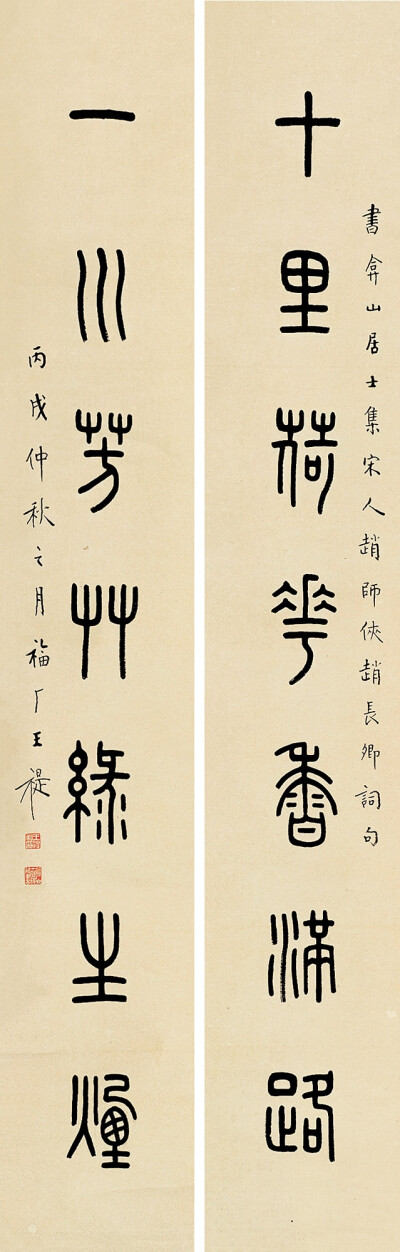 書弇山居士集宋人趙師俠趙長卿詞句
十里荷華香滿路
一川芳艸綠生煙
丙戌仲秋之月福厂王禔